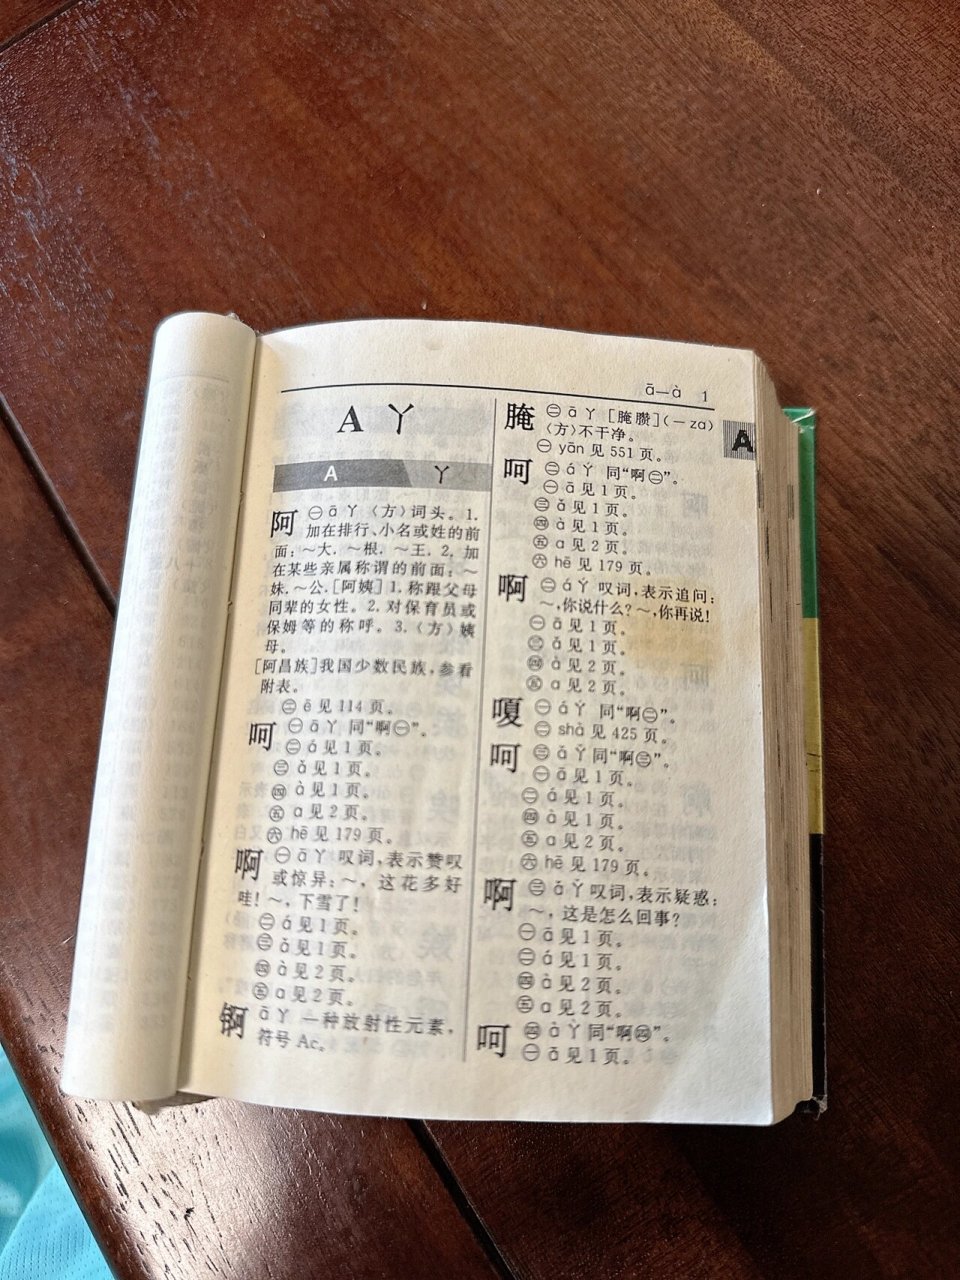 ā—à 1
A ㄚ
A ㄚ
A
阿 ㊀ā ㄚ〈方〉词头。1.
加在排行、小名或姓的前
面：～大．～根．～王．2. 加
在某些亲属称谓的前面：～
妹．～公．[阿姨] 1. 称跟父母
同辈的女性。2. 对保育员或
保姆等的称呼。3.〈方〉姨
母。
[阿昌族]我国少数民族，参看
附表。
㊁ē 见 114 页。
呵 ㊀ā ㄚ 同“啊㊀”。
㊁á 见 1 页。
㊂ǎ 见 1 页。
㊃à 见 1 页。
㊄a 见 2 页。
㊅hē 见 179 页。
啊 ㊀ā ㄚ 叹词，表示赞叹
或惊异：～，这花多好
哇！～，下雪了！
㊁á 见 1 页。
㊂ǎ 见 1 页。
㊃à 见 2 页。
㊄a 见 2 页。
锕 ā ㄚ 一种放射性元素，
符号 Ac。
腌 ㊁ā ㄚ [腌臜]（－za）
〈方〉不干净。
㊀yān 见 551 页。
呵 ㊁á ㄚˊ 同“啊㊁”。
㊀ā 见 1 页。
㊂ǎ 见 1 页。
㊃à 见 1 页。
㊄a 见 2 页。
㊅hē 见 179 页。
啊 ㊁á ㄚˊ 叹词，表示追问：
～，你说什么？～，你再说！
㊀ā 见 1 页。
㊂ǎ 见 1 页。
㊃à 见 2 页。
㊄a 见 2 页。
嗄 ㊀á ㄚˊ 同“啊㊁”。
㊁shà 见 425 页。
呵 ㊂ǎ ㄚˇ 同“啊㊂”。
㊀ā 见 1 页。
㊁á 见 1 页。
㊃à 见 1 页。
㊄a 见 2 页。
㊅hē 见 179 页。
啊 ㊂ǎ ㄚˇ 叹词，表示疑惑：
～，这是怎么回事？
㊀ā 见 1 页。
㊁á 见 1 页。
㊃à 见 2 页。
㊄a 见 2 页。
呵 ㊃à ㄚˋ 同“啊㊃”。
㊀ā 见 1 页。